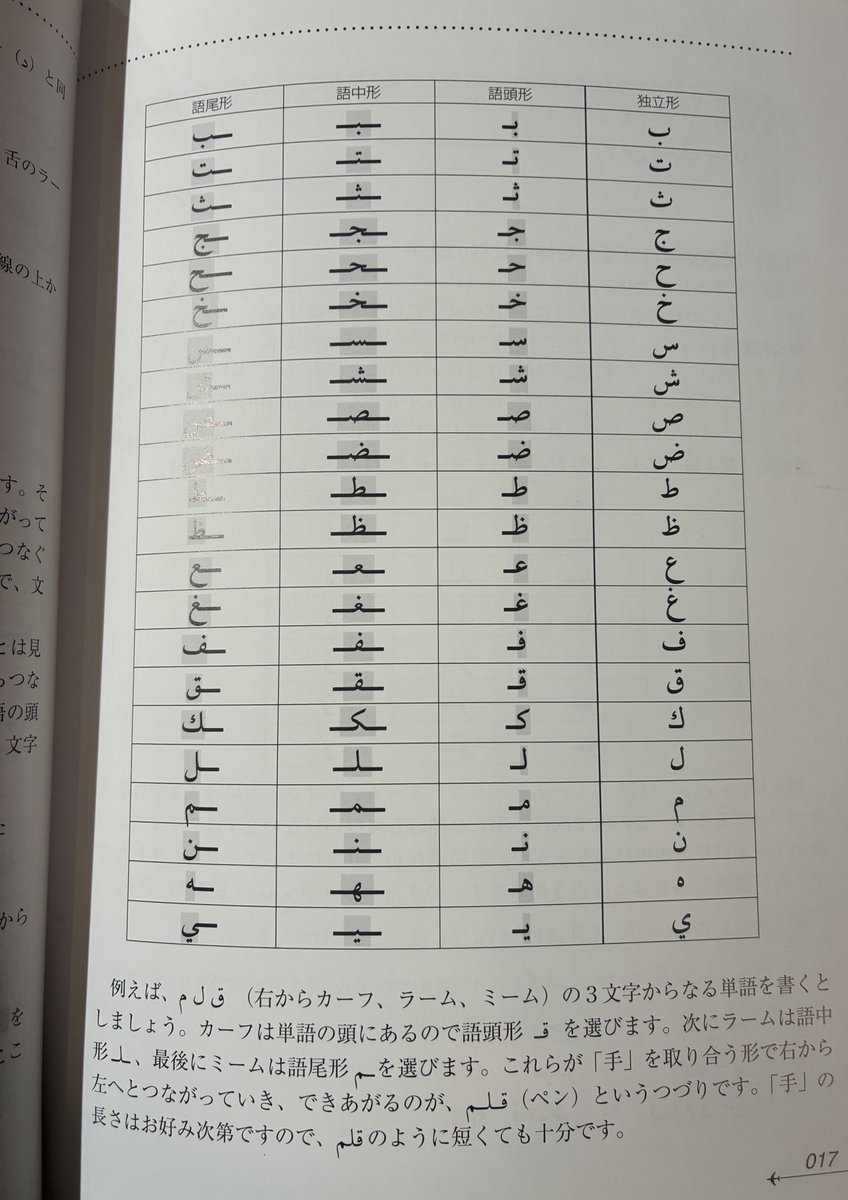 (د) と同
舌のラー
線の上か
す。そ
がって
つなぐ
で、文
とは見
らつな
語の頭
文字
から
を
語尾形 語中形 語頭形 独立形
ـب ـبـ بـ ب
ـت ـتـ تـ ت
ـث ـثـ ثـ ث
ـج ـجـ جـ ج
ـح ـحـ حـ ح
ـخ ـخـ خـ خ
ـس ـسـ سـ س
ـش ـشـ شـ ش
ـص ـصـ صـ ص
ـض ـضـ ضـ ض
ـط ـطـ طـ ط
ـظ ـظـ ظـ ظ
ـع ـعـ عـ ع
ـغ ـغـ غـ غ
ـف ـفـ فـ ف
ـق ـقـ قـ ق
ـك ـكـ كـ ك
ـل ـلـ لـ ل
ـم ـمـ مـ م
ـن ـنـ نـ ن
ـه ـهـ هـ ه
ـي ـيـ يـ ي
例えば、ق ل م（右からカーフ、ラーム、ミーム）の3文字からなる単語を書くと
しましょう。カーフは単語の頭にあるので語頭形 قـ を選びます。次にラームは語中
形 ـلـ、最後にミームは語尾形 ـم を選びます。これらが「手」を取り合う形で右から
左へとつながっていき、できあがるのが、قـلـم（ペン）というつづりです。「手」の
長さはお好み次第ですので、قلم のように短くても十分です。
017